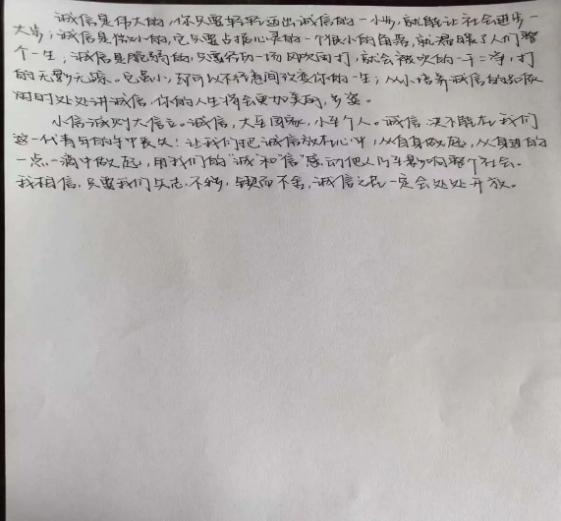 诚信是伟大的,你只要轻轻迈出诚信的一小步,就能让社会进步一
大步;诚信是微小的,它只要占据心灵的一个很小的角落,就温暖了人们整
个一生;诚信是脆弱的,只要经历一场风吹雨打,就会被吹的一干二净,打
的无影无踪。它虽小,却可以不经意间改变你的一生;从小培养诚信的
时时处处讲诚信,你的人生将会更加美丽,多姿。
小信诚则大信立。诚信,大至国家,小至个人。诚信决不能在我们
这一代青年的手中丧失!让我们把诚信放在心中,从自身做起,从身边的
一点一滴中做起,用我们的"诚"和"信"感动他人乃至影响整个社会。
我相信,只要我们矢志不移,锲而不舍,诚信之花一定会处处开放。